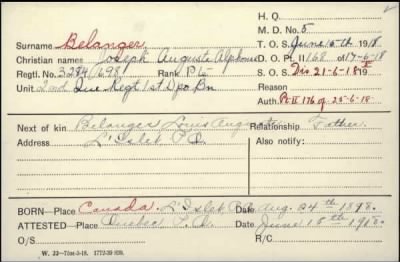 H. Q.
M. D. No. 5
Surname Belanger. T. O. S. June 15th 1918
Christian names Joseph Auguste Alphonse D. O. Pt. II 168 of 17-6-18
Regtl. No. 3284698 Rank Pte S. O. S. Dis 21-6-18
Unit 2nd Que Regt 1st Dpo Bn Reason
Auth. Pt II 176 of 25-6-18
Next of kin Belanger Louis Auguste Relationship Father
Address L'Islet P.Q. Also notify:
BORN Place Canada. L'Islet P.Q. Date Aug. 24th 1898.
ATTESTED Place Quebec P.Q. Date June 15th 1918.
O/S R/C